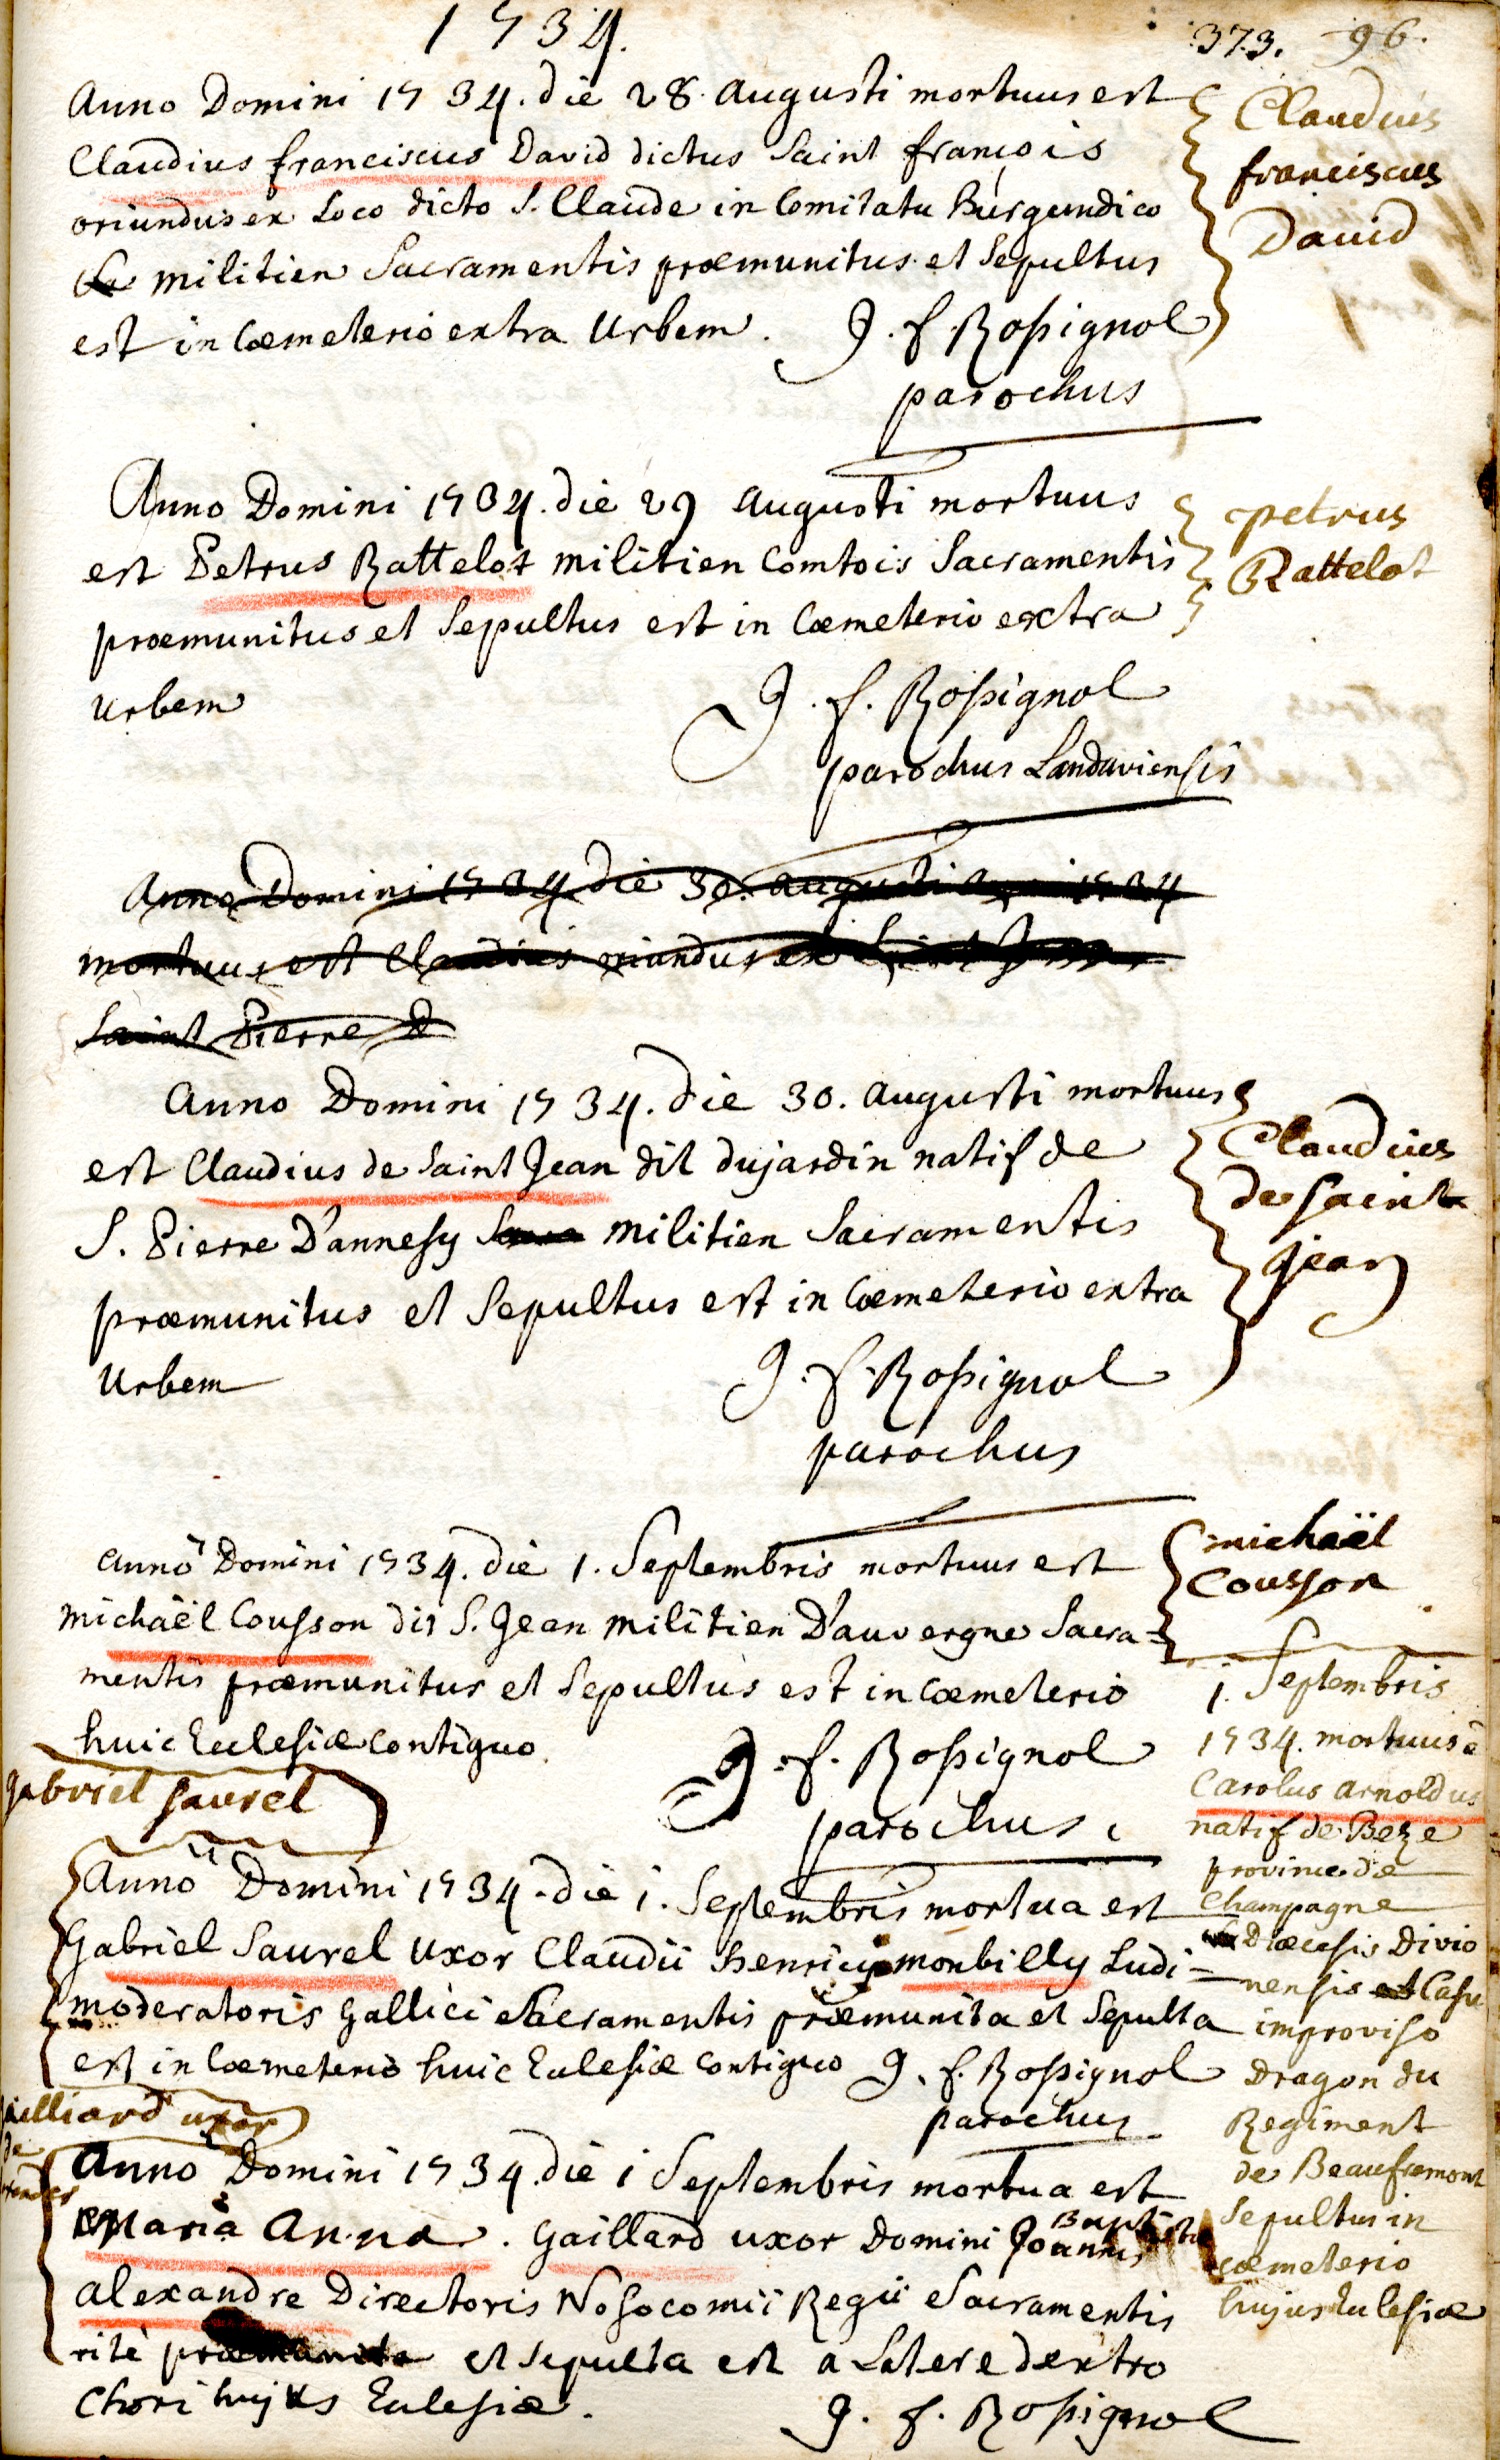 1734.
373. 96.
Anno Domini 1734. die 28. Augusti mortuus est
Claudius franciscus David dictus Saint françois
oriundus ex Loco dicto S. Claude in Comitatu Burgundico
militien Sacramentis præmunitus et Sepultus
est in Cœmeterio extra Urbem. J. f. Rossignol
parochus
Claudius
franciscus
David
Anno Domini 1734. die 29 Augusti mortuus
est Petrus Rattelot militien Comtois Sacramentis
præmunitus et Sepultus est in Cœmeterio extra
Urbem J. f. Rossignol
parochus Landaviensis
petrus
Rattelot
Anno Domini 1734 die 30. augusti 1734
mortuus est Claudius oriundus ex
Saint Pierre D
Anno Domini 1734. die 30. Augusti mortuus
est Claudius de Saint Jean dit dujardin natif de
S. Pierre D'annesy militien Sacramentis
præmunitus et Sepultus est in Cœmeterio extra
Urbem J. f. Rossignol
parochus
Claudius
de Saint
Jean
Anno Domini 1734. die 1. Septembris mortuus est
Michaël Cousson dit S. Jean militien D'auvergne Sacra=
mentis præmunitus et Sepultus est in Cœmeterio
huic Ecclesiæ contiguo. J. f. Rossignol
parochus
michaël
Cousson
1. Septembris
1734. mortuus ē
Carolus Arnoldus
natif de Beze
province de
Champagne
Diœcesis Divio
nensis Casu
improviso
Dragon du
Regiment
de Beaufremont
Sepultus in
cœmeterio
hujus Ecclesiæ
gabriel Saurel
Anno Domini 1734. die 1. Septembris mortua est
Gabriel Saurel Uxor Claudii henrici monbilly Ludi=
moderatoris Gallici Sacramentis præmunita et Sepulta
est in Cœmeterio huic Ecclesiæ Contiguo J. f. Rossignol
parochus
ailliard uxor
de
Anno Domini 1734. die 1 Septembris mortua est
Maria Anna. Gaillard uxor Domini Joannis Baptistæ
alexandre Directoris Nosocomii Regii Sacramentis
rite præmunita et sepulta est a Latere dextro
Chori hujus Ecclesiæ. J. f. Rossignol